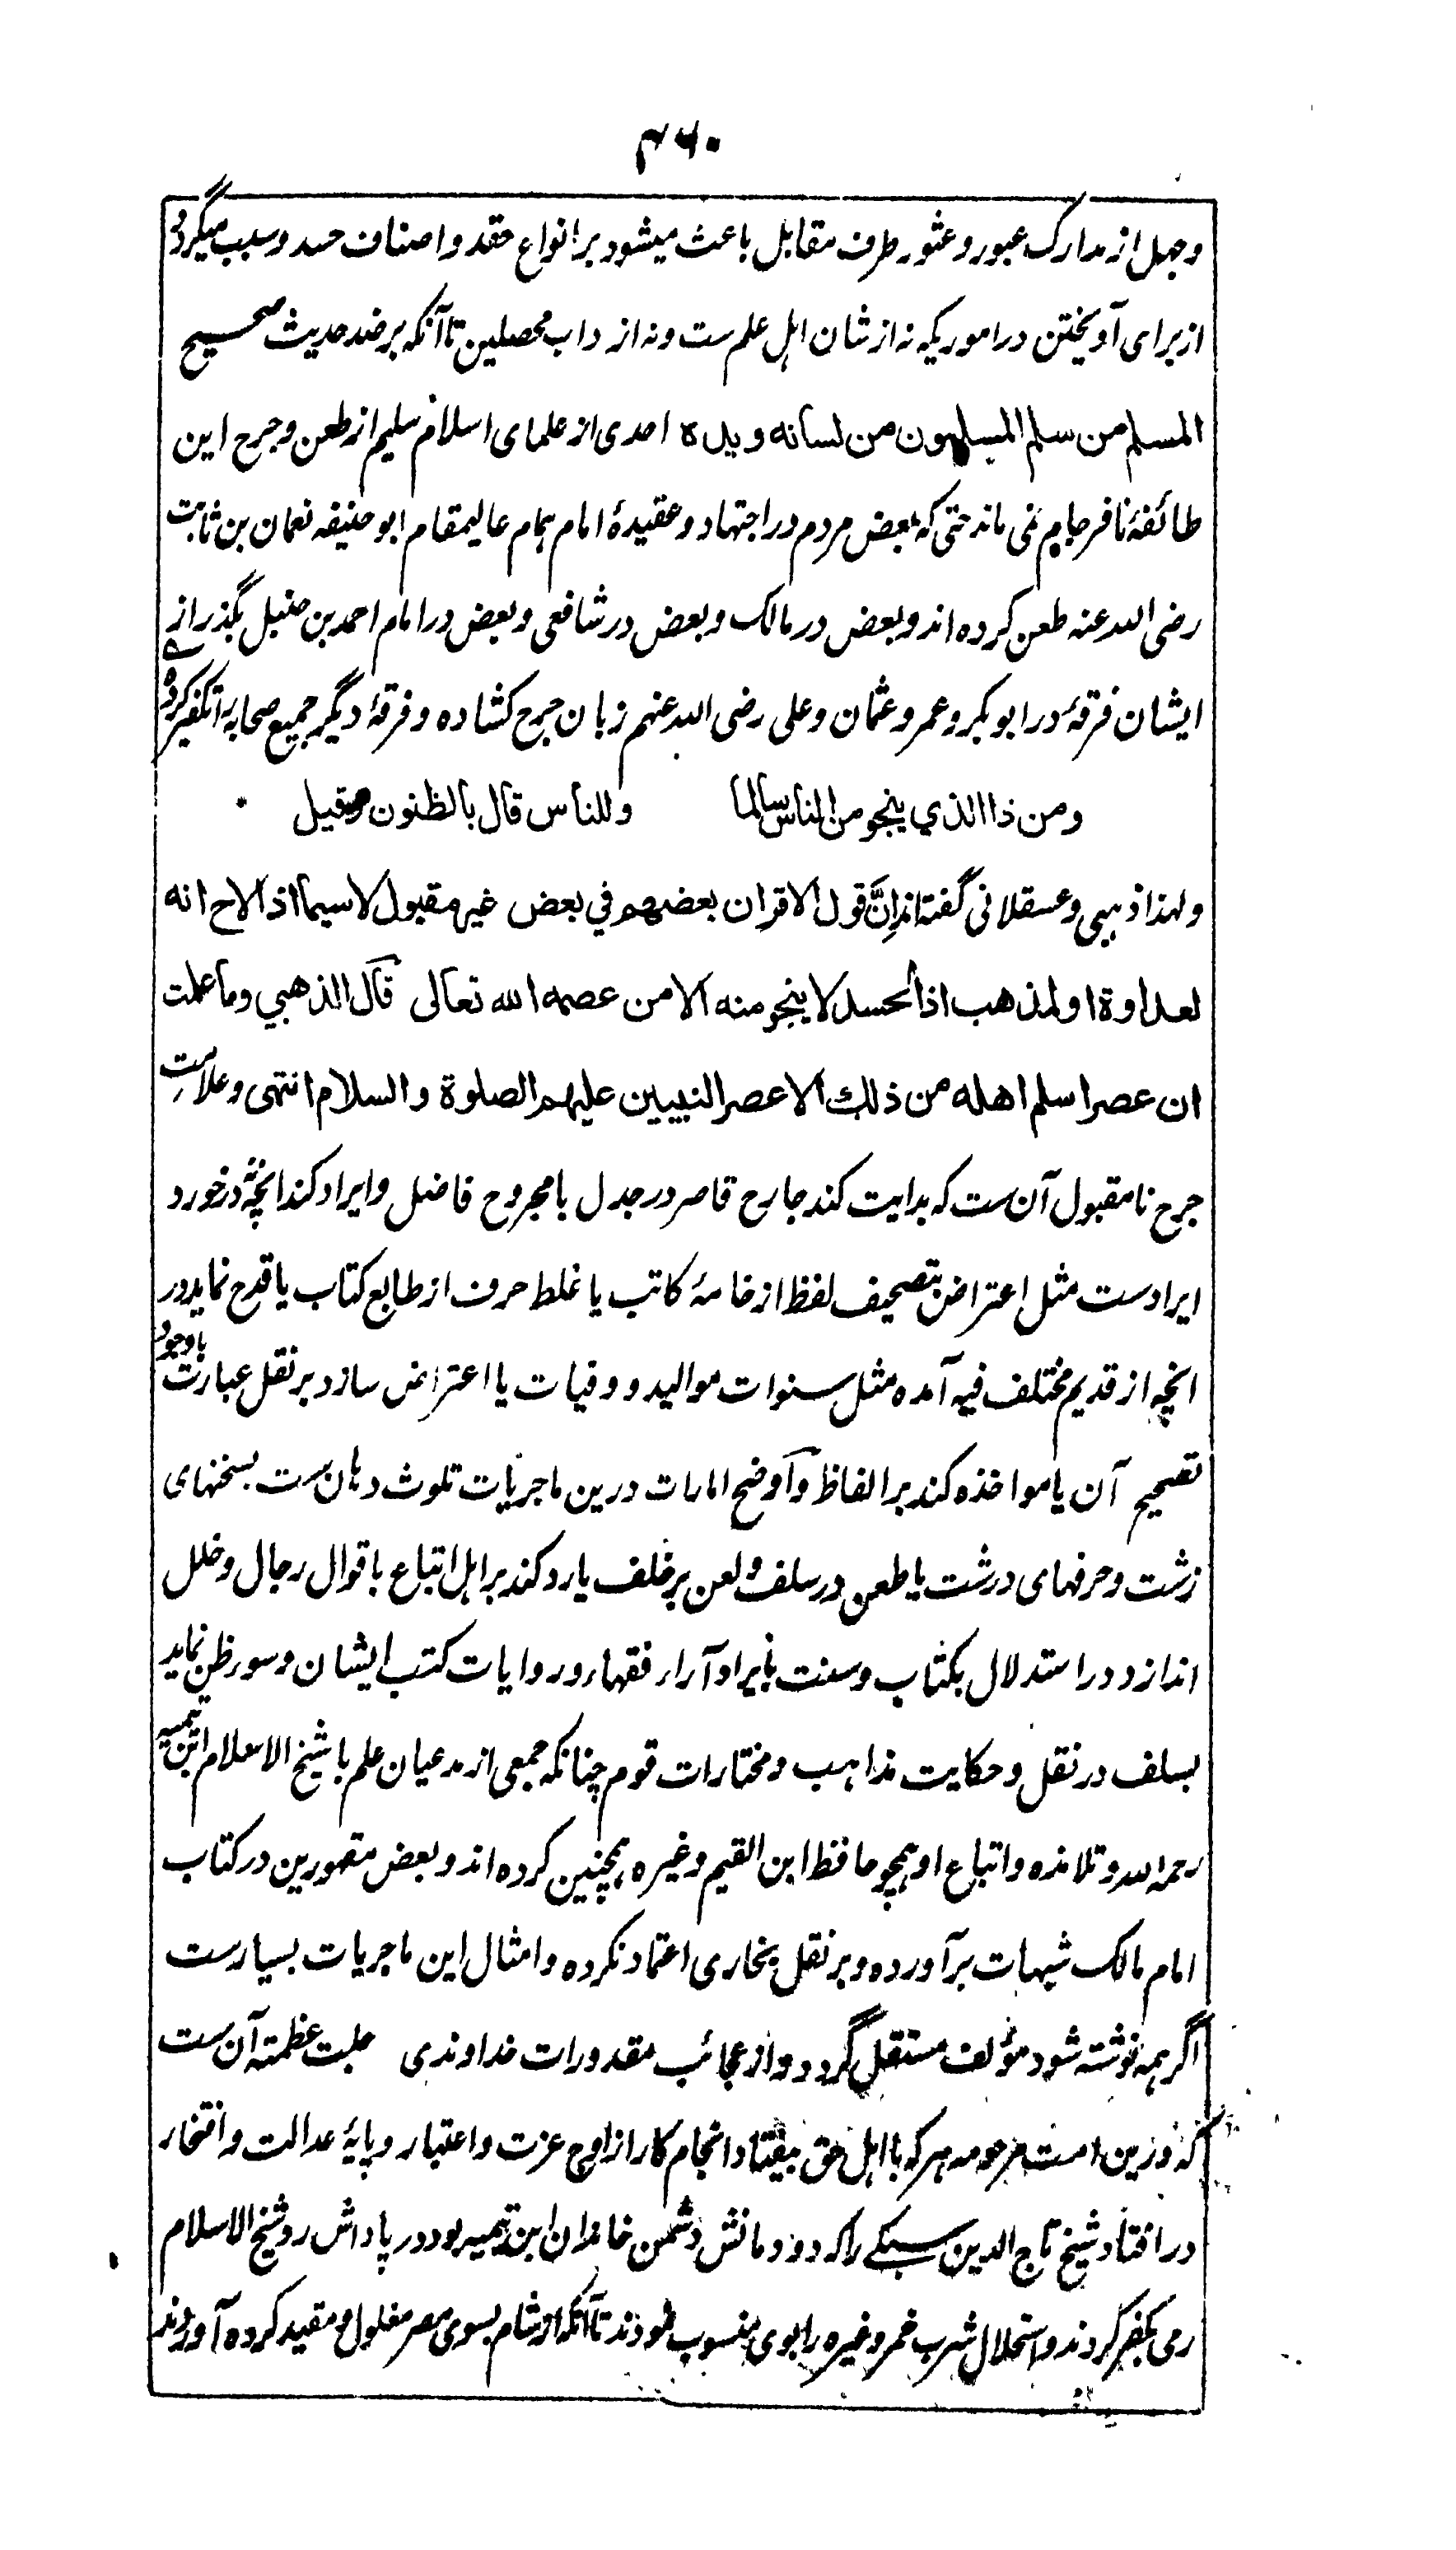 ۴۶۰
وجهل از مدارک عبور و عثور طرف مقابل باعث میشود بر انواع حقد و اصناف حسد و سبب میگردد
از برای آویختن در اموریکه نه از شان اهل علم ست و نه از داب محصلین تا آنکه بر ضد حدیث صحیح
المسلم من سلم المسلمون من لسانه ویده احدی از علمای اسلام سلیم از طعن و جرح این
طائفهٔ نافرجام نمی ماند حتی که بعض مردم در اجتهاد و عقیدهٔ امام همام عالیمقام ابو حنیفه نعمان بن ثابت
رضی الله عنه طعن کرده اند و بعض در مالک و بعض در شافعی و بعض در امام احمد بن حنبل بگذر از
ایشان فرقهٔ در ابوبکر و عمر و عثمان و علی رضی الله عنهم زبان جرح کشاده و فرقهٔ دیگر جمیع صحابه را تکفیر کرده
ومن ذا الذي ينجو من الناس سالما وللناس قال بالظنون وقيل
ولهذا ذهبی و عسقلانی گفته اند إنَّ قول الاقران بعضهم في بعض غير مقبول لاسيما اذا لاح انه
لعداوة او لمذهب اذ الحسد لا ينجو منه الا من عصمه الله تعالى قال الذهبي وما علمت
ان عصرا سلم اهله من ذلك الا عصر النبيين عليهم الصلوة والسلام انتهی و علامت
جرح نامقبول آن ست که بدایت کند جارح قاصر در جدل با مجروح فاضل و ایراد کند انچه نه درخورد
ایرادست مثل اعتراض بتصحیف لفظ از خامهٔ کاتب یا غلط حرف از طابع کتاب یا قدح نماید در
انچه از قدیم مختلف فیه آمده مثل سنوات موالید و وفیات یا اعتراض سازد بر نقل عبارت باوجود
تصحیح آن یا مواخذه کند بر الفاظ و اوضح امارات درین ماجریات تلوث دهان ست بسخنهای
زشت و حرفهای درشت یا طعن در سلف و لعن بر خلف یا رد کند بر اهل اتباع باقوال رجال و خلل
اندازد در استدلال بکتاب و سنت بایراد آراء فقهاء و روایات کتب ایشان و سوء ظن نماید
بسلف در نقل و حکایت مذاهب و مختارات قوم چنانکه جمعی از مدعیان علم با شیخ الاسلام ابن تیمیه
رحمه الله و تلامذه و اتباع او همچو حافظ ابن القیم و غیره همچنین کرده اند و بعض متهورین در کتاب
امام مالک شبهات برآورده و بر نقل بخاری اعتماد نکرده و امثال این ماجریات بسیارست
اگر همه نوشته شود مؤلف مستقل گردد و از عجائب مقدورات خداوندی جلت عظمته آن ست
که درین امت مرحومه هر که با اهل حق بیفتاد انجام کار از اوج عزت و اعتبار و پایهٔ عدالت و افتخار
در افتاد شیخ تاج الدین سبکے را که دودمانش دشمن خاندان ابن تیمیه بود در پاداش رد شیخ الاسلام
رمی بکفر کردند و استحلال شرب خمر و غیره را بوی منسوب نمودند تا آنکه از شام بسوی مصر مغلول و مقید کرده آوردند